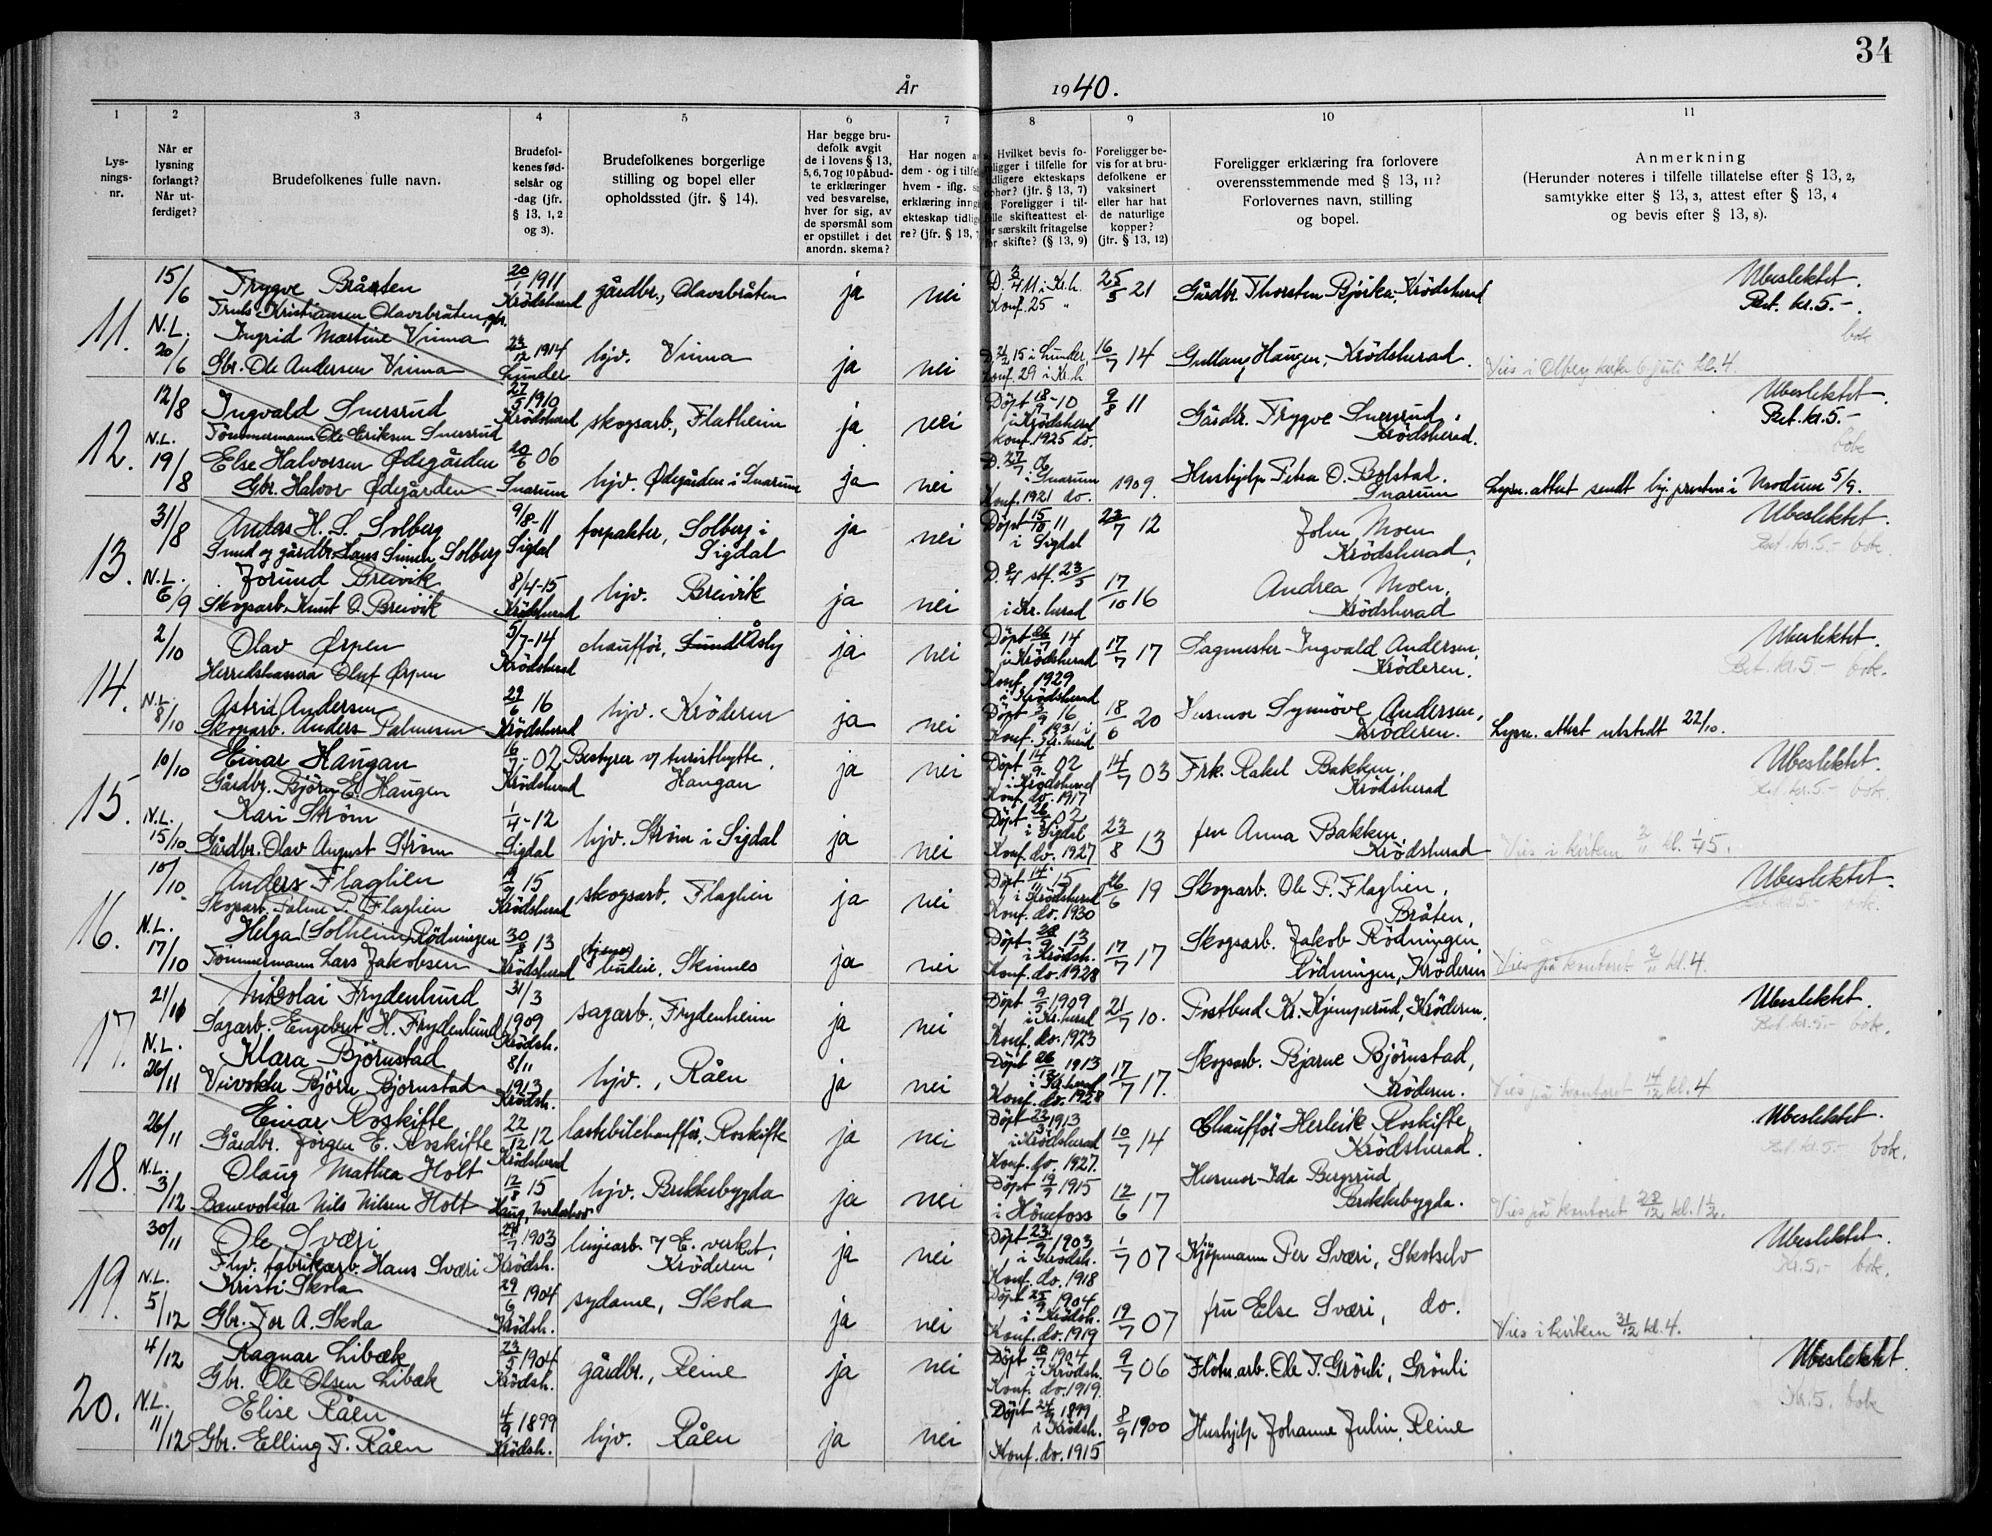 34
År 1940.
1 2 3 4 5 6 7 8 9 10 11
Lysningsnr.
Når er lysning forlangt? Når utferdiget?
Brudefolkenes fulle navn.
Brudefolkenes fødselsår og -dag (jfr. § 13, 1, 2 og 3).
Brudefolkenes borgerlige stilling og bopel eller opholdssted (jfr. § 14).
Har begge brudefolk avgit de i lovens § 13, 5, 6, 7 og 10 påbudte erklæringer ved besvarelse, hver for sig, av de spørsmål som er opstillet i det anordn. skema?
Har nogen a dem - og i tilfel hvem - iflg. s erklæring inng ekteskap tidlig re? (jfr. § 13,
Hvilket bevis foligger i tilfelle for dligere ekteskaps phør? (jfr. § 13, 7) Foreligger i tilfelle skifteattest eller særskilt fritagelse for skifte? (§ 13, 9)
Foreligger bevis for at brudefolkene er vaksinert eller har hat de naturlige kopper? (jfr. § 13, 12)
Foreligger erklæring fra forlovere overensstemmende med § 13, 11? Forlovernes navn, stilling og bopel.
Anmerkning (Herunder noteres i tilfelle tillatelse efter § 13, 2, samtykke efter § 13, 3, attest efter § 13, 4 og bevis efter § 13, 8).
11.
15/6 Trygve Bråten 20/1 1911 Krödsherad gårdbr., Olavsbråten ja nei D. 2/4 11 i Kr.h. Konf. 25 " 25/5 21 Gårdbr. Thorsten Bjöka, Krödsherad Ubeslektet. Bet. kr. 5.-
Truls Kristiansen Olavsbråten gbr.
N.L. 20/6 Ingrid Martine Vinna 23/12 1914 Lunder hjv. Vinna ja nei 15 i Lunder, Konf. 29 i Kr.h. 16/7 14 Haugen, Krödsherad. bok
Gbr. Ole Andersen Vinna Vies i Olberg kirke 6 juli kl. 4.
12.
12/8 Ingvald Snersrud 27/5 1910 Krödsherad skogsarb., Flatheim ja nei Döpt 18/9-10 i Krödsherad Konf. 1925 do. 9/8 11 Gårdbr. Trygve Snersrud, Krödsherad. Ubeslektet. Bet. kr. 5.-
Tömmermann Ole Eriksen Snersrud bok
N.L. 19/8 Else Halvorsen Ødegården 20/6 06 Snarum hjv. Ødegården i Snarum ja nei D. 27/7 06 i Snarum Konf. 1921 do. 1909. Hushjelp Petra O. Bolstad. Snarum Lysn. attest sendt sogneprest i Modum 5/9.
Gbr. Halvor Ødegården
13.
31/8 Anders H. S. Solberg 9/8-11 Sigdal forpakter, Solberg i Sigdal ja nei Döpt 15/10 11 i Sigdal 23/7 12 John Moen Krödsherad, Ubeslektet. Bet. kr. 5.- bok.
Smed og gårdbr. Hans Simen Solberg
N.L. 6/9 Jorund Breivik 8/4-15 Krödsherad hjv. Breivik ja nei D. 2/4 stf. 23/5 i Kr. herad 17/10 16 Andrea Moen, Krödsherad
Skogsarb. Knut O. Breivik
14.
2/10 Olav Ørpen 5/7-14 Krödsherad chauffør, Åsly ja nei Döpt 26/7 14 i Krödsherad Konf. 1929 i Krödsherad 17/7 17 Sagmester Ingvald Andersen, Kröderen. Ubeslektet. Bet. kr. 5.- bok.
Herredskasserer Oluf Ørpen
N.L. 8/10 Astrid Andersen 29/6 16 Krödsherad hjv. Kröderen ja nei Döpt 3/9 16 Konf. 1931 i Kr. herad 18/6 20 Husmor Synnöve Andersen, Kröderen. Lysn. attest utstedt 22/10.
Skogsarb. Anders Palmesen
15.
10/10 Einar Haugan 16/7-02 Krödsherad Bestyrer v/ turisthytte, Haugan ja nei Döpt 14/9. 02 i Krödsherad Konf. do. 1917 14/7 03 Frk. Rakel Bakken, Krödsherad Ubeslektet. Bet. kr. 5.- bok.
Gårdbr. Björn E. Haugen
N.L. 15/10 Kari Strøm 1/4-12 Sigdal hjv. Strøm i Sigdal ja nei Döpt i Sigdal Konf. do. 1927 23/8 13 fru Anna Bakken, Krödsherad Vies i kirken 2/11 kl. 1 45.
Gårdbr. Olav August Strøm
16.
10/10 Anders Flaglien 15 Krödsherad skogsarb. Flaglien ja nei Döpt 14/11 15 i Krödsherad Konf. do. 1930 26/6 19 Skogsarb. Ole P. Flaglien, Bråten, Ubeslektet. bok.
Skogsarb. Flaglien
N.L. 17/10 Helga (Solheim) Rödningen 30/8 13 Krödsherad budeie, Skinnes ja nei Döpt 28/9 13 i Krödsh. Konf. do. 1928 17/7 17 Skogsarb. Jakob Rödningen, Rödningen, Kröderen Vies på kontoret 2/11 kl. 4.
Tömmermann Lars Jakobsen
17.
21/11 Nikolai Frydenlund 31/3 1909 Krödsh. sagarb., Frydenheim ja nei Döpt 9/5 1909 i Kr.herad Konf. do. 1923 21/7 10. Postbud Kr. Kjemperud, Kröderen. Ubeslektet. Bet. kr. 5.- bok.
Sagarb. Engebret H. Frydenlund
N.L. 26/11 Klara Björnstad 8/11 1913 Krödsh. hjv., Råen ja nei Döpt 26/12 1913 i Kr.herad Konf. do. 1928 17/7 17. Skogsarb. Bjarne Björnstad, Kröderen. Vies på kontoret 14/12 kl. 4
Veivokter Björn Björnstad
18.
26/11 Einar Roskifte 22/12 12 Krödsherad lastebilchauffør, Roskifte ja nei Döpt 23/3 1913 i Krödsherad Konf. do. 1927. 10/7 14 Chauffør Herleik Roskifte, Krödsherad. Ubeslektet. Bet. kr. 5.- bok.
Gårdbr. Jörgen E. Roskifte
N.L. 3/12 Olaug Mathea Holt 12/8 15 Haug, Norderhov hjv. Bukkebygda ja nei Döpt 19/9 1915 i Hönefoss 12/6 17 Husmor Ida Bergsrud, Bukkebygda. Vies på kontoret 28/12 kl. 1 1/2.
Banevokter Nils Nilsen Holt
19.
30/11 Ole Sværi 29/7 1903 Krödsh. linjearb. v/ E. verket, Kröderen ja nei Döpt 23/9 1903 i Krödsh. Konf. do. 1918 1/7 07 Kjöpmann Per Sværi, Skotselv Ubeslektet. Kr. 5.- bok.
Fhv. fabrikarb. Hans Sværi
N.L. 5/12 Kristi Skola 29/6 1904 Krödsh. sydame, Skola ja nei Döpt 25/9 1904 i Krödsh. Konf. do. 1919 19/7 07 fru Else Sværi, do. Vies i kirken 31/12 kl. 4.
Gbr. Tor A. Skola
20.
4/12 Ragnar Libæk 23/5 1904 Krödsh. gårdbr., Reine ja nei Döpt 10/7 1904 i Krödsh. Konf. do. 1919. 9/7 06 Flötn.arb. Ole T. Grönli, Grönli Ubeslektet. Kr. 5. bok
Gbr. Ole Olsen Libæk
N.L. 11/12 Elise Råen 4/9 1899 Krödsh. hjv. Råen ja nei Döpt 24/9 1899 i Krödsh. Konf. do. 1915 8/9 1900 Hushjelp Johanne Julin, Reine
Gbr. Elling T. Råen